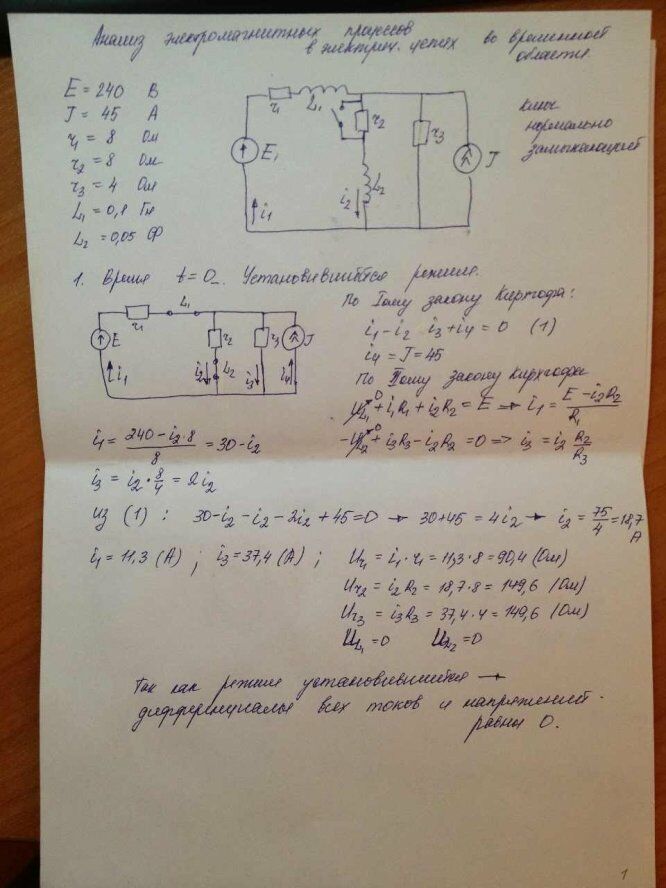 Анализ электромагнитных процессов
в электрич. цепях во временной
области.
E = 240 В
J = 45 А
r₁ = 8 Ом
r₂ = 8 Ом
r₃ = 4 Ом
L₁ = 0,1 Гн
L₂ = 0,05 Ф
r₁ L₁ r₂ r₃ E₁ J i₁ i₂ L₂
ключ
нормально
замыкающий
1. Время t = 0₋. Установившийся режим.
r₁ L₁ E r₂ r₃ J i₁ i₂ L₂ i₃ i₄
По Iому закону Кирхгофа:
i₁ - i₂ i₃ + i₄ = 0 (1)
i₄ = J = 45
По IIому закону Кирхгофа
U_L₁⁰ + i₁R₁ + i₂R₂ = E ⇒ i₁ = (E - i₂R₂)/R₁
-U_L₂⁰ + i₃R₃ - i₂R₂ = 0 ⇒ i₃ = i₂ R₂/R₃
i₁ = (240 - i₂·8)/8 = 30 - i₂
i₃ = i₂ · 8/4 = 2i₂
Из (1) : 30 - i₂ - i₂ - 2i₂ + 45 = 0 → 30 + 45 = 4i₂ → i₂ = 75/4 = 18,7 А
i₁ = 11,3 (А) ; i₃ = 37,4 (А) ; U_r₁ = i₁ · r₁ = 11,3 · 8 = 90,4 (Ом)
U_r₂ = i₂R₂ = 18,7 · 8 = 149,6 (Ом)
U_r₃ = i₃R₃ = 37,4 · 4 = 149,6 (Ом)
U_L₁ = 0 U_L₂ = 0
Так как режим установившийся →
дифференциалы всех токов и напряжений
равны 0.
1